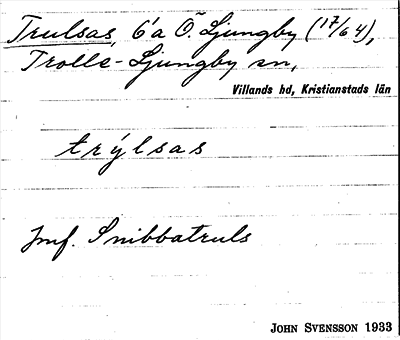 Trulsas, 6'a Ö. Ljungby (17/6 4),
Trolle-Ljungby sn,
Villands hd, Kristianstads län
trýlsas
Jmf. Snibbatruls
JOHN SVENSSON 1933